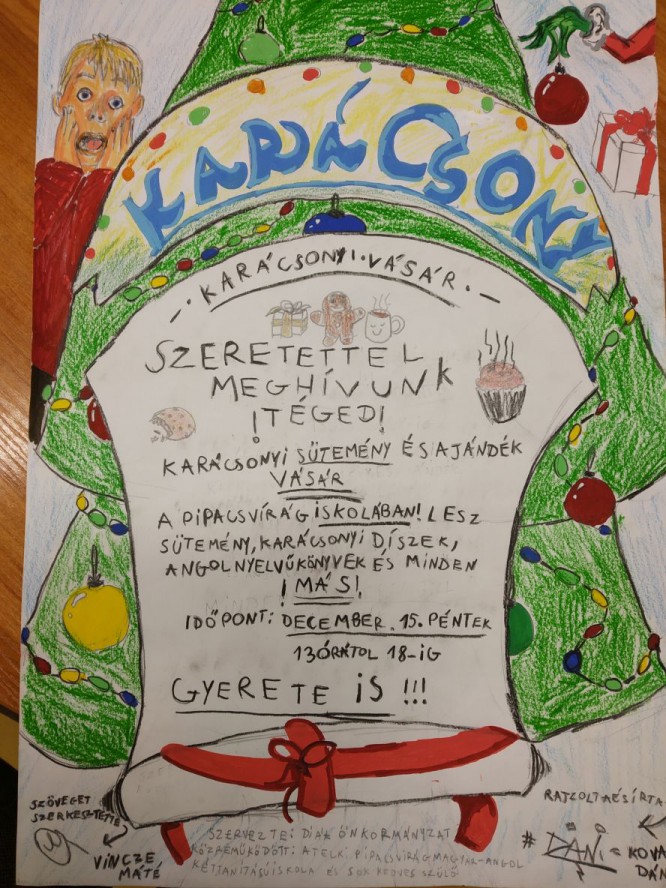 KARÁCSONY
KARÁCSONYI VÁSÁR
SZERETETTEL
MEGHÍVUNK
!TÉGED!
KARÁCSONYI SÜTEMÉNY ÉS AJÁNDÉK
VÁSÁR
A PIPACSVIRÁG ISKOLÁBAN! LESZ
SÜTEMÉNY, KARÁCSONYI DÍSZEK,
ANGOLNYELVŰKÖNYVEK ÉS MINDEN
! MÁS!
IDŐPONT: DECEMBER. 15. PÉNTEK
13ÓRÁTOL 18-IG
GYERETE IS !!!
SZÖVEGET
SZERKESZTETTE
VINCZE
MÁTÉ
SZERVEZTE: DIÁK ÖNKORMÁNYZAT
KÖZREMŰKÖDÖTT: A TELKI PIPACSVIRÁG MAGYAR-ANGOL
KÉTTANÍTÁSÚ ISKOLA ÉS SOK KEDVES SZÜLŐ!
RAJZOLTA ÉS ÍRTA
# DANI = KOVA
DÁN